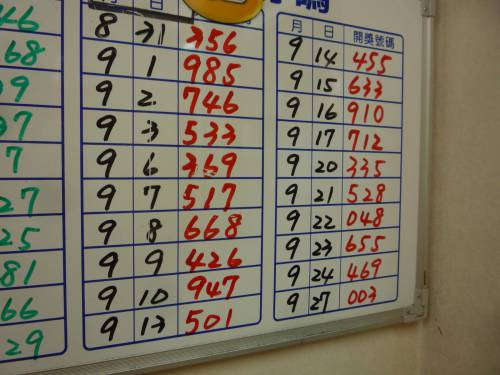 46
68
9
97
7
27
25
81
66
29
月 日
8 31 356
9 1 985
9 2 746
9 3 533
9 6 369
9 7 517
9 8 668
9 9 426
9 10 947
9 13 501
月 日 開獎號碼
9 14 455
9 15 633
9 16 910
9 17 712
9 20 335
9 21 528
9 22 048
9 23 655
9 24 469
9 27 003